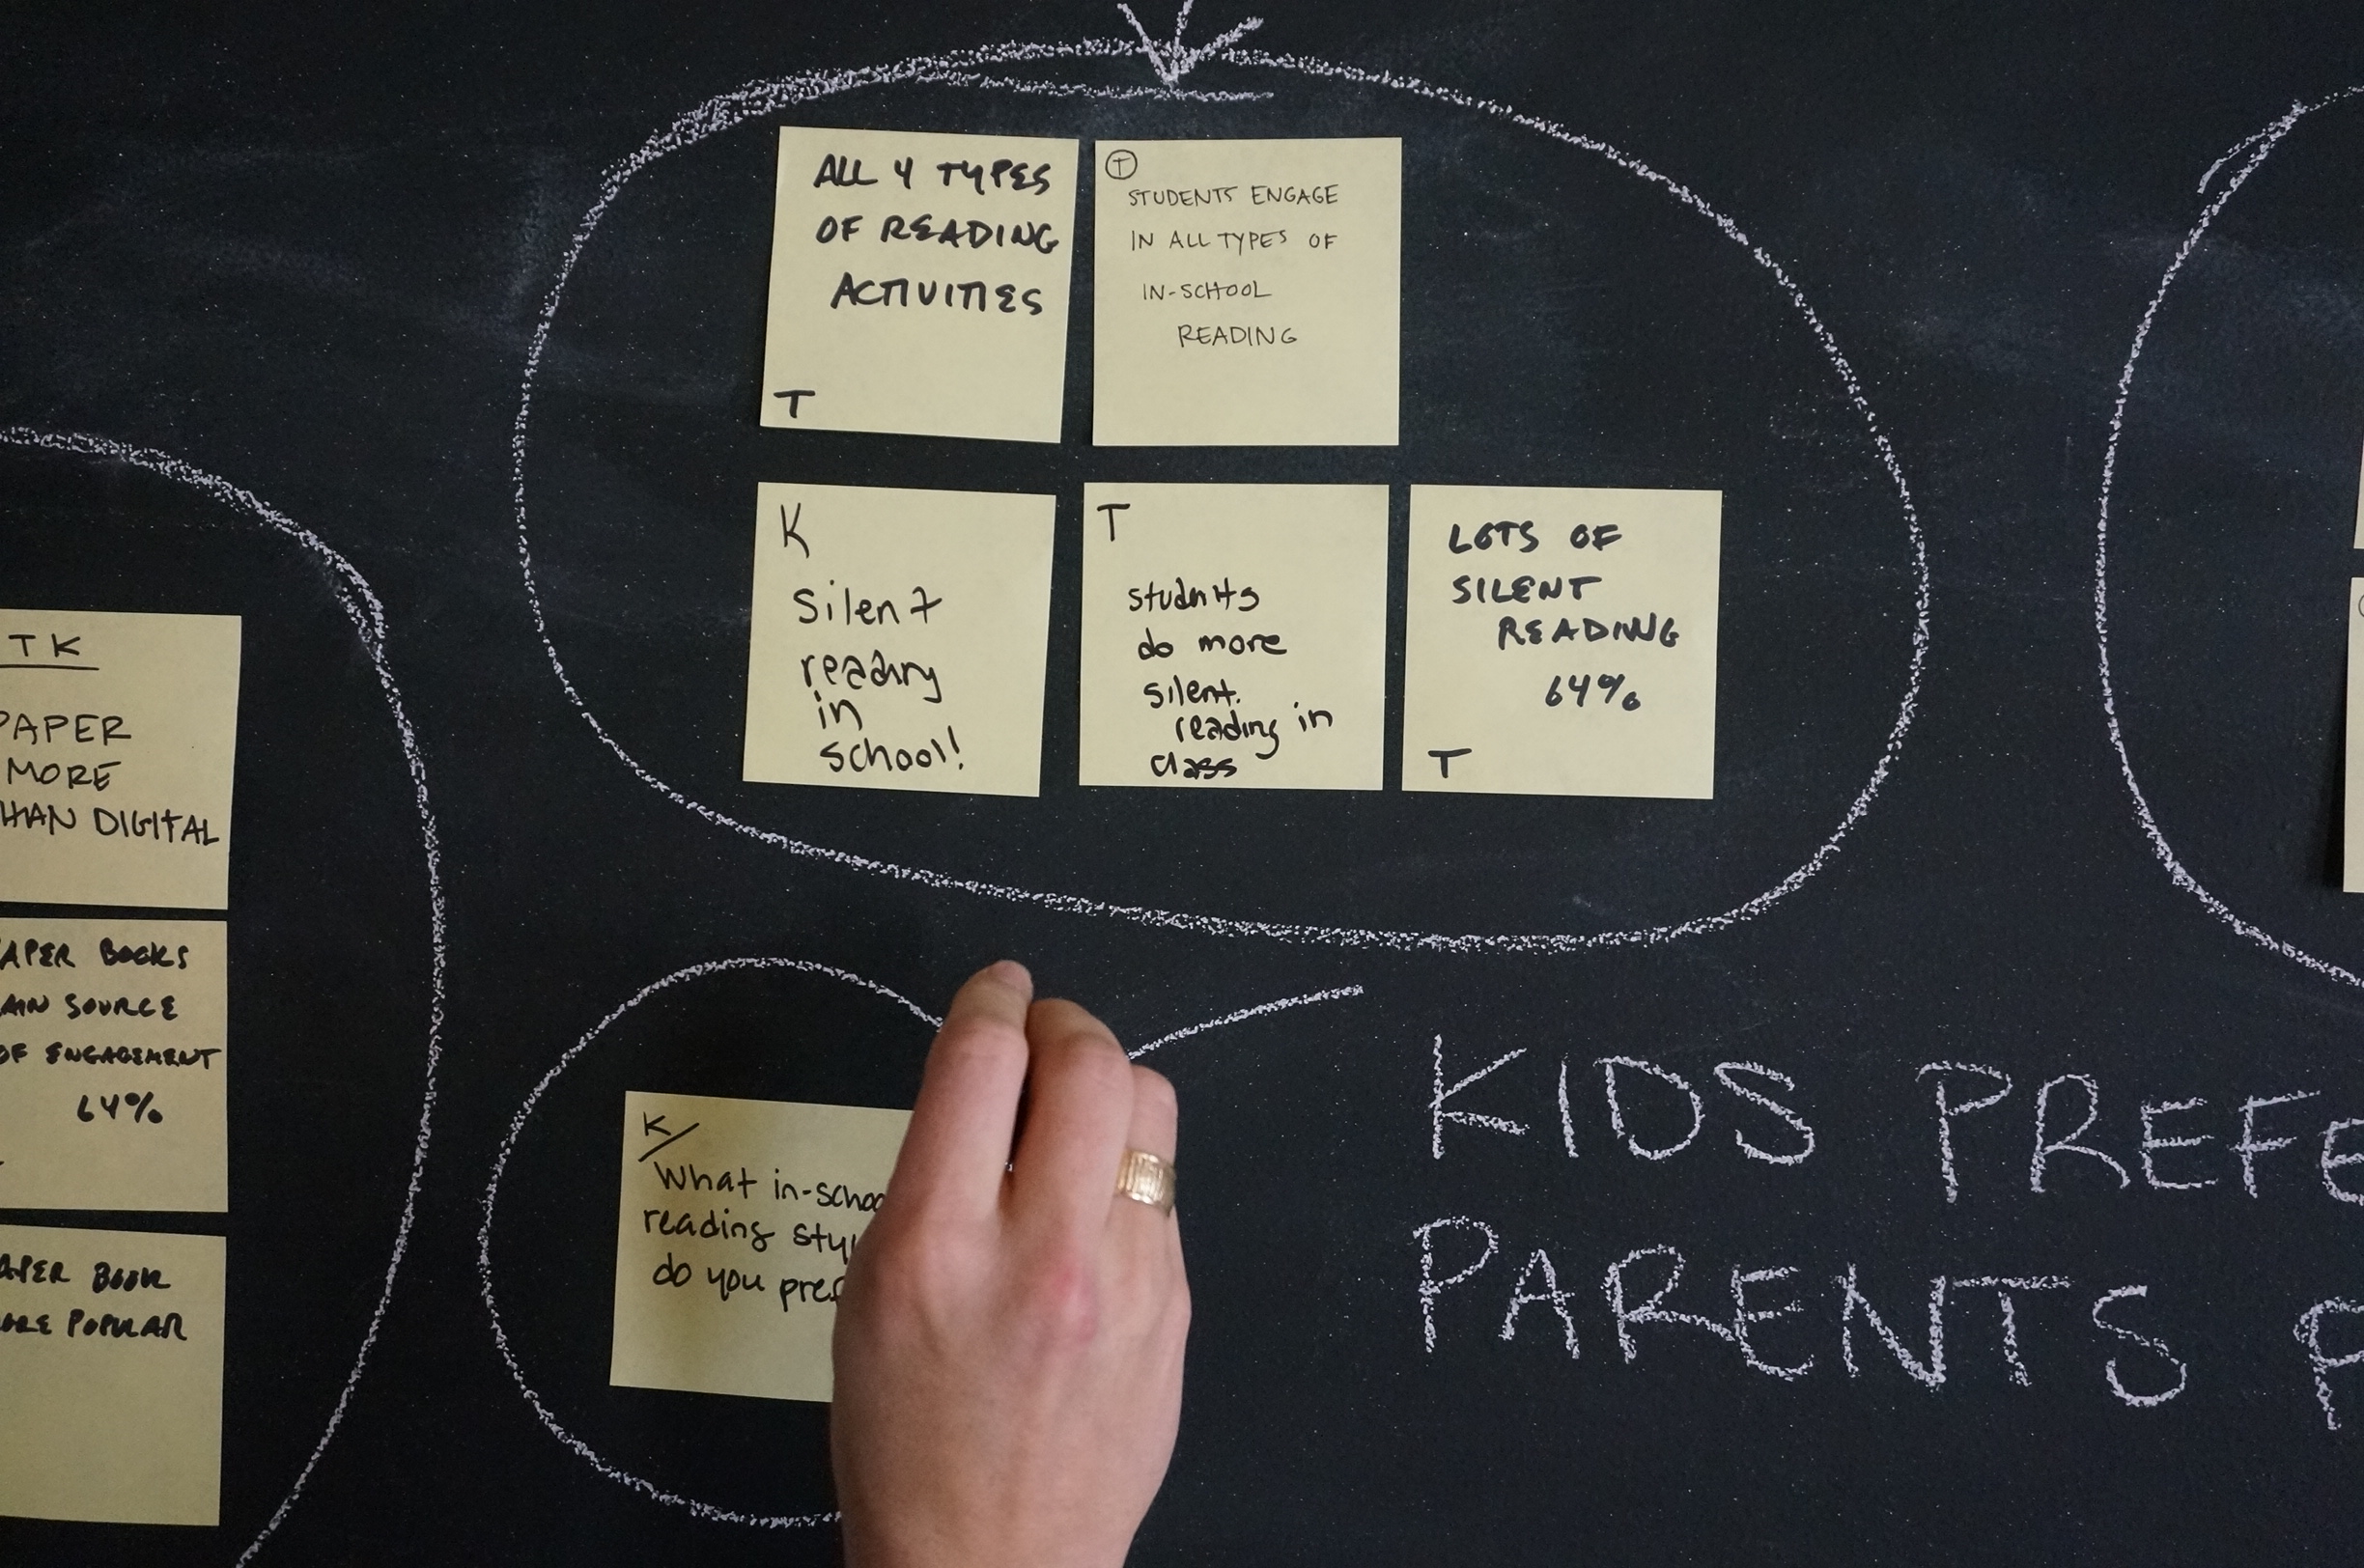 ALL 4 TYPES
OF READING
ACTIVITIES
T
T
STUDENTS ENGAGE
IN ALL TYPES OF
IN-SCHOOL
READING
K
Silent
reading
in
school!
T
students
do more
silent.
reading in
class
LOTS OF
SILENT
READING
64%
T
TK
PAPER
MORE
THAN DIGITAL
PAPER BOOKS
MAIN SOURCE
OF ENGAGEMENT
64%
PAPER BOOK
MORE POPULAR
K
What in-school
reading
do you
KIDS PREFE
PARENTS